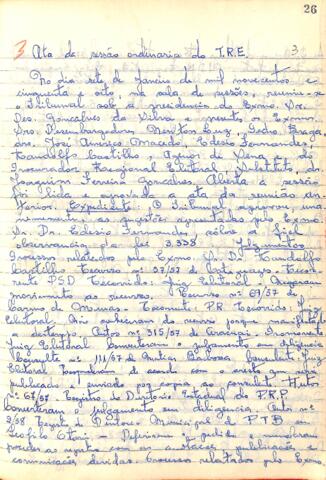 26
3 Ata da sessão ordinaria do T.R.E. 3
No dia sete de Janeiro de mil novecentos e
cinquenta e oito, na sala de sessões, reuniu-se
o Tribunal sob a presidencia do Exmo. Sr.
Des. Gonçalves da Silva e presentes os Exmos.
Srs. Desembargadores Merolino Luz, Pedro Braga
drs. José Americo Macedo, Edesio Fernandes,
Randolfo Castilho,
Procurador Regional Eleitoral Substituto, dr.
Joaquim Ferreira Gonçalves. Aberta a sessão
foi lida e aprovada a ata da reunião an-
terior. Expediente: O Tribunal aprovou, una-
nimemente, as sugestões apresentadas pelo Exmo.
Sr. Dr. Edesio Fernandes sôbre a fiel
observancia da lei 3.338 Julgamentos
Processos relatados pelo Exmo. Sr. Dr. Randolfo
Castilho Recurso nº 37/57 de Recor-
rente PSD Recorrido: Juiz Eleitoral - Negaram
provimento ao recurso. Recurso nº 69/57 de
Carmo de Minas - Recorrente P.R. Recorrido: J.
Eleitoral
Autos nº 315/57 de
Juiz Eleitoral Converteram o julgamento em diligencia
Consulte nº 111/57 de Barbosa Consulente: Juiz
Eleitoral Responderam de acordo com o
publicado e enviado por copia ao consulente. Autos
nº 67/57 - Registro do Diretorio Estadual do P.R.P.
Converteram o julgamento em diligencia Autos nº
2/58 Registro de Diretorio Municipal do PTB em
Teofilo Otoni - Deferiram o pedido e mandaram
proceder ao registro com as anotações, publicações e
comunicações devidas. Processos relatados pelo Exmo.